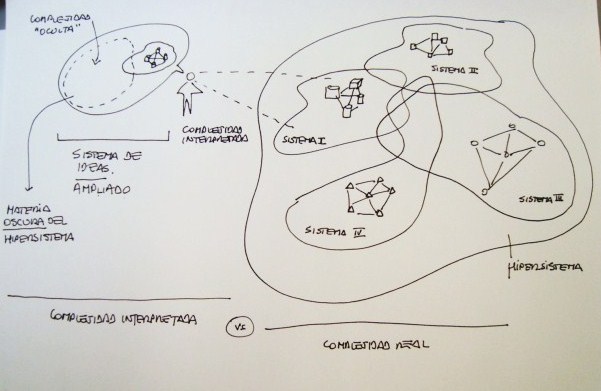 COMPLEJIDAD
"OCULTA"
COMPLEJIDAD
INTERPRETADA
SISTEMA DE
IDEAS
AMPLIADO
MATERIA
OSCURA DEL
HIPERSISTEMA
SISTEMA II
SISTEMA I
SISTEMA III
SISTEMA IV
HIPERSISTEMA
COMPLEJIDAD INTERPRETADA
VS
COMPLEJIDAD REAL